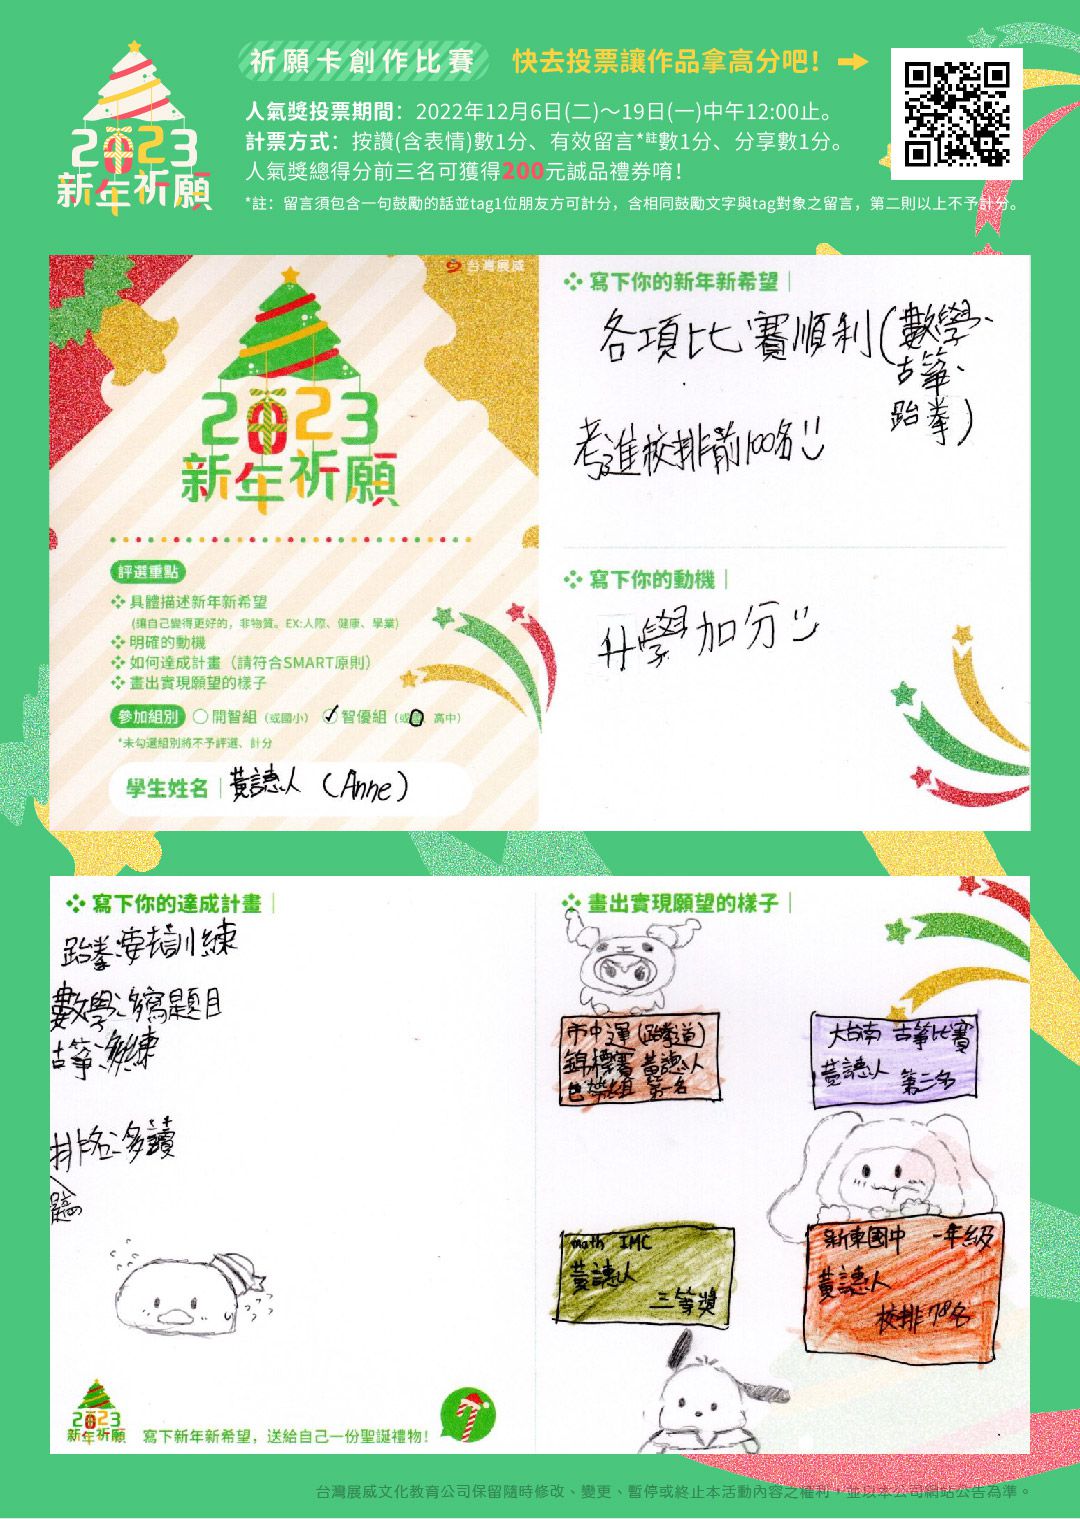 2023
新年祈願
祈願卡創作比賽
快去投票讓作品拿高分吧!
人氣獎投票期間：2022年12月6日(二)～19日(一)中午12:00止。
計票方式：按讚(含表情)數1分、有效留言*註數1分、分享數1分。
人氣獎總得分前三名可獲得200元誠品禮券唷!
*註：留言須包含一句鼓勵的話並tag1位朋友方可計分，含相同鼓勵文字與tag對象之留言，第二則以上不予計分。
台灣展威
2023
新年祈願
評選重點
具體描述新年新希望
(讓自己變得更好的，非物質。EX:人際、健康、學業)
明確的動機
如何達成計畫（請符合SMART原則）
畫出實現願望的樣子
參加組別 開智組（或國小） 智優組（或 高中）
*未勾選組別將不予評選、計分
學生姓名 黃 人 (Anne)
寫下你的新年新希望
各項比賽順利(數學、
古箏、
跆拳)
考進校排前100名!!
寫下你的動機
升學加分!!
寫下你的達成計畫
跆拳:要培訓練
數學:多寫題目
古箏:多練
排名:多讀
畫出實現願望的樣子
市中運(跆拳道)
錦標賽 黃 人
色帶組 第 名
大台南 古箏比賽
黃 人 第二名
math IMC
黃 人
三等獎
新東國中 一年級
黃 人
校排78名
2023
新年祈願
寫下新年新希望，送給自己一份聖誕禮物!
台灣展威文化教育公司保留隨時修改、變更、暫停或終止本活動內容之權利，並以本公司網站公告為準。